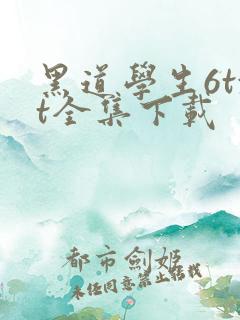 黑道學生6tx
t全集下載
都市劍姬
未经同意禁止转载